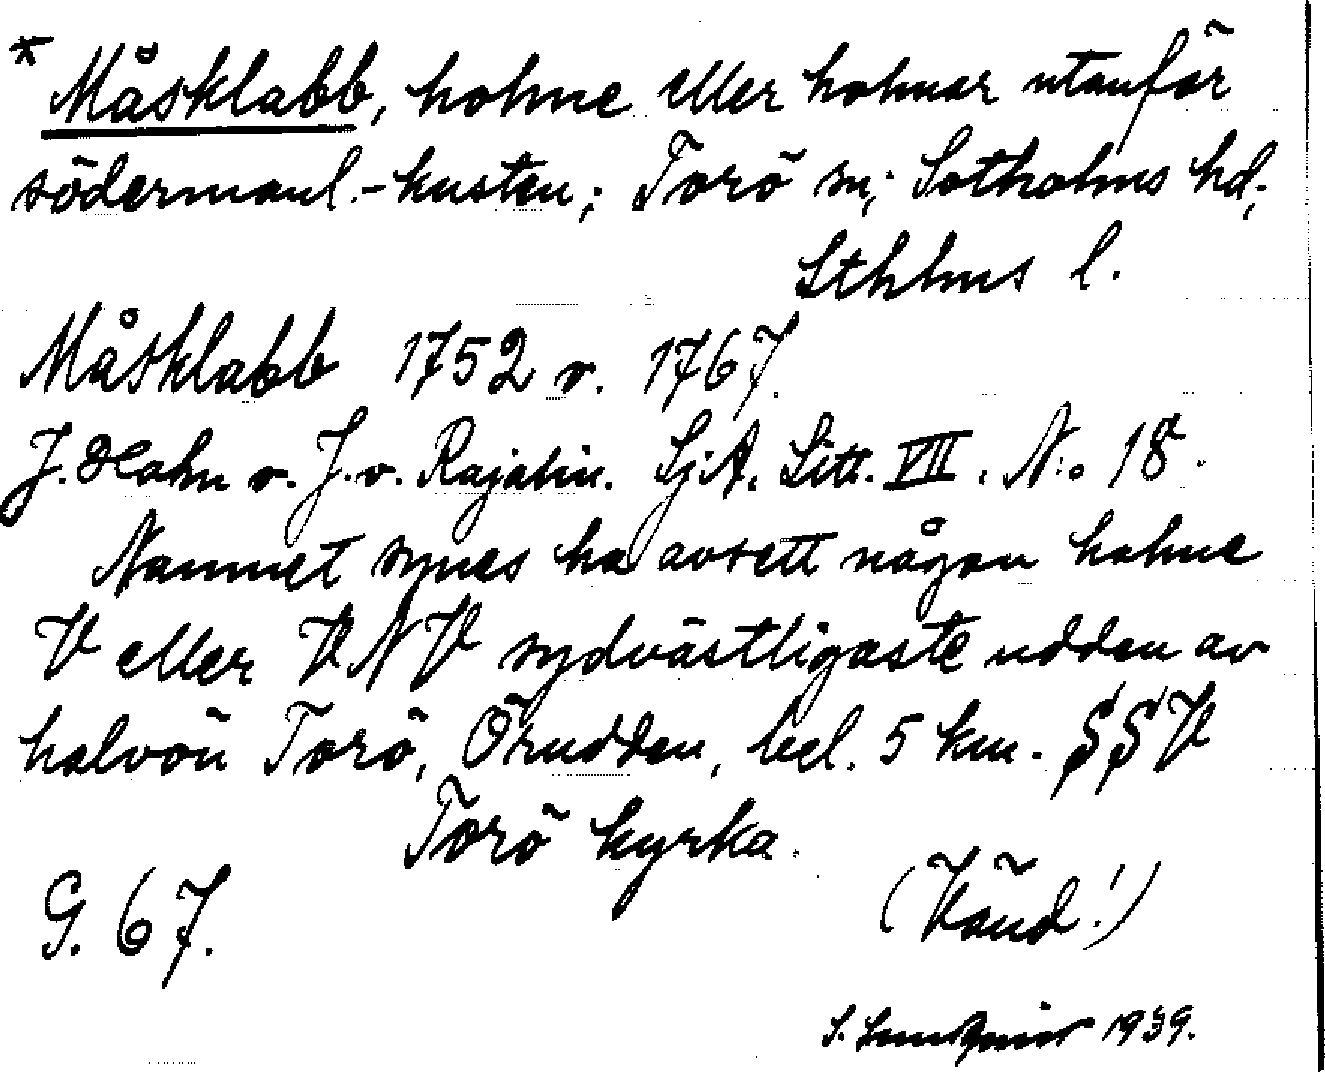 * Måsklabb, holme eller holmar utanför
södermanl.-kusten; Torö sn; Sotholms hd,
Sthlms l.
Måsklabb 1752 o. 1767.
J. Hahn o. J. v. Rajalin. SjA. Litt. VIII. N:o 18.
Namnet synes ha avsett någon holme
V eller VNV sydvästligaste udden av
halvön Torö, Örudden, bel. 5 km. SSV
Torö kyrka.
G. 67.
(Vänd!)
1939.